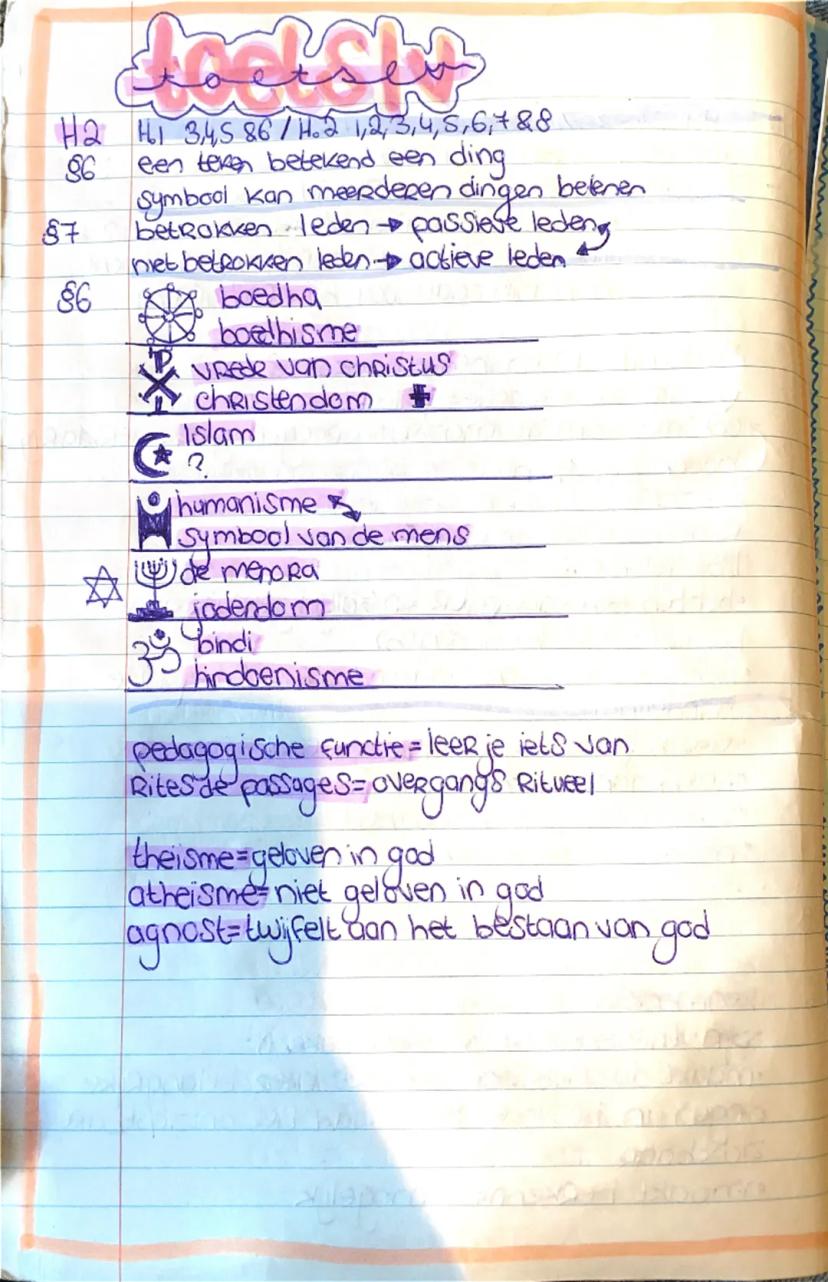 toetslv
toetslv
H2 H.1 3,4,5 & 6 / H.2 1,2,3,4,5,6,7 & 8
§6 een teken betekend een ding
symbool kan meerderen dingen betenen
§7 betrokken leden → passieve leden
niet betrokken leden → actieve leden
§6 boedha
boedhisme
vrede van christus
christendom
Islam
?
humanisme
symbool van de mens
de menora
jodendom
bindi
hindoenisme
pedagogische functie = leer je iets van
Rites de passages = overgangs Ritueel
theisme = geloven in god
atheisme = niet geloven in god
agnost = twijfelt aan het bestaan van god